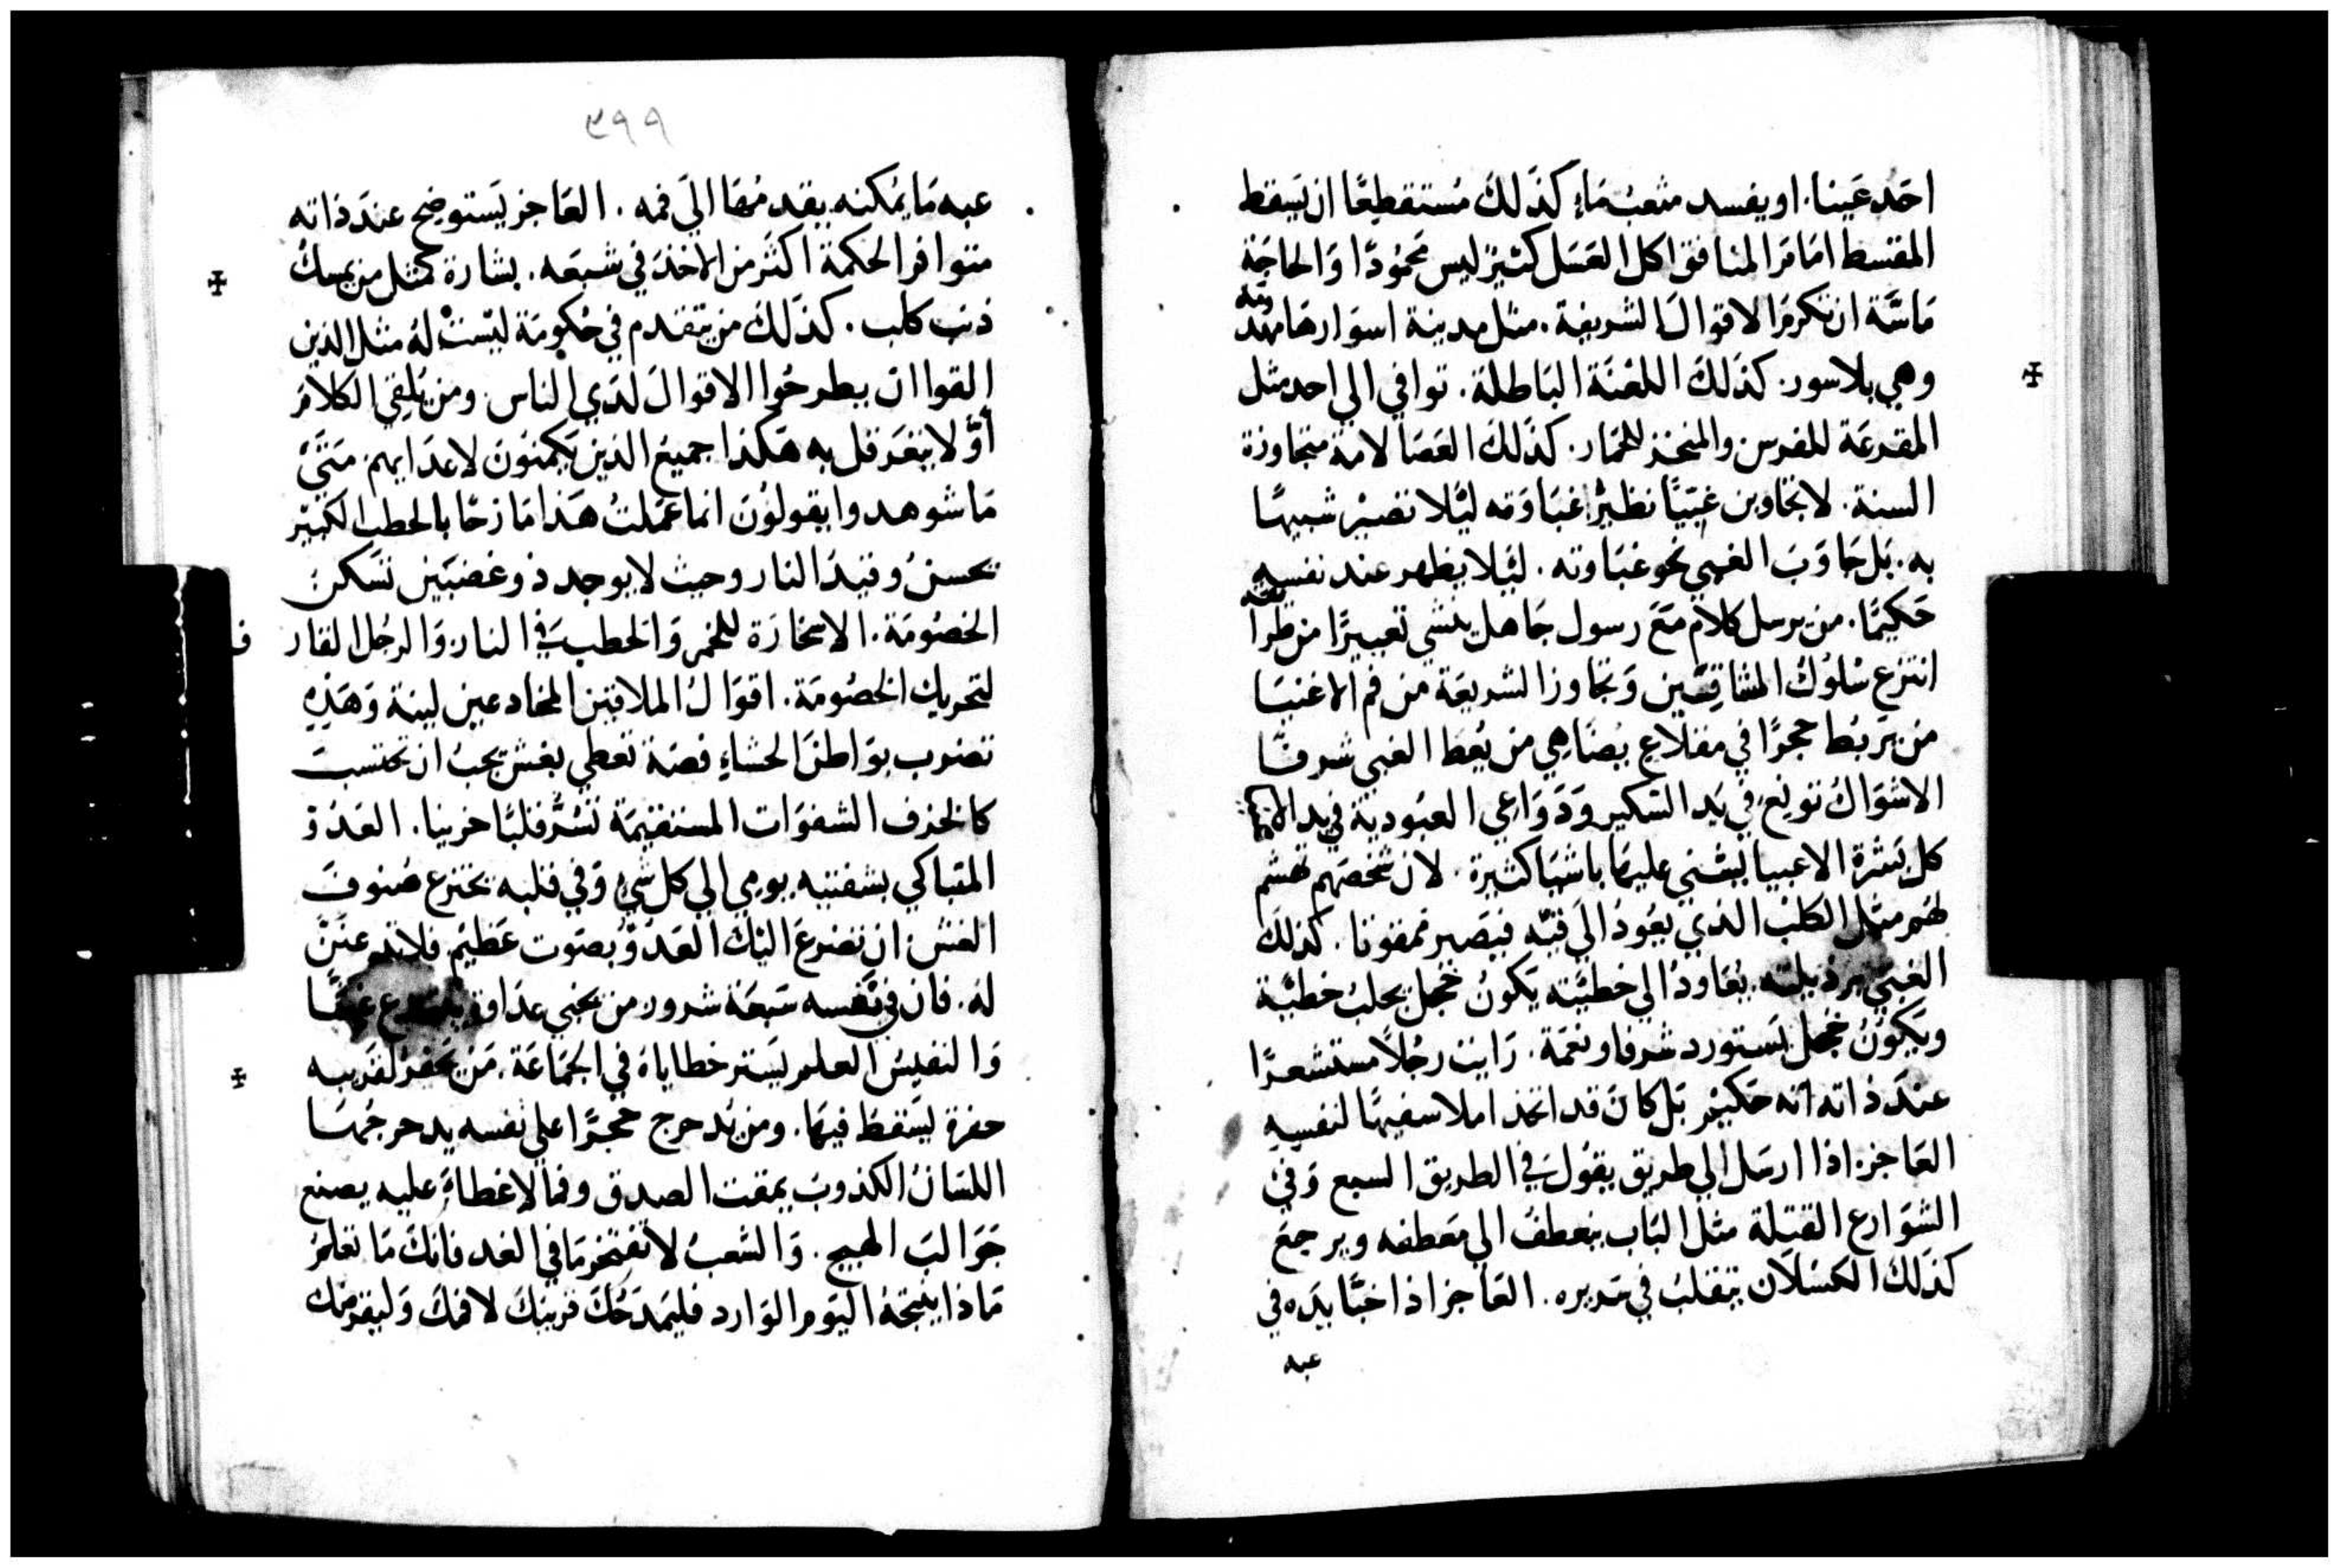 احَد عَينا. او يفسد مثعبُ مَاءٍ كذَلكَ مُستقطِعًا ان يَسقط
المقسط امَامَ المنافق اكل العَسَل كثيرٌ ليس مَحمُودًا وَالحاجَة
مَاسَّة ان تكرمَ الاقوالَ الشريفة. مثل مدينة اسوَارهَا مهَدومَه
وهي بلا سور. كذلكَ اللعْنَة البَاطلة. توافي الي احد مثل
المقرعَة للفرس والمنخز للحمَار. كذَلكَ العَصَا لامة متجاوزة
السنة. لا تجَاوبن غبَيًا نظيرْ غبَاوَته ليَّلا تصَيرْ شبيهًا
به. بَل جَاوَبَ الغبي نحو غبَاوته. ليَّلا يظهر عند نفسهِ
حَكيمًا. من يرسل كلام مَعَ رسول جَاهل ينشي تعييرًا من طرايقه
انتزع سُلوُكُ المشاقِقين وَتجاوز الشريعَة من فم الاغنيَا
من يَربُط حجرًا في مقلاعٍ يُضَاهي من يُعط الغبي شرفًا
الاشوَاكُ تونع في يَد السَكير وَدَوَاعي العبُودية في يد
كل بَشرة الاغبيا يشتي عليهَا باشيَا كثيرة. لان شخصَهم تهشم
لهم مثل الكلب الذي يعُودُ الَى قيّه فيصَير ممقوتا. كذلكَ
الغبي برذيلته يُعَاودُ الي خطيَّته يَكونُ خجل يجلبُ خطيَّة
ويَكوُنُ خجل يَستورد شرفا ونعمَة. رَايت رجُلاً مستشعرًا
عندَ ذاته انه حَكيْم بَل كانَ قد اتخذ املا سفيهًا لنفسهِ
العَاجز اذا ارسَل الي طريق يقوُل في الطريق السبع وَفي
الشوَارع القتلة مثل البَاب ينعطفُ الي مَعطفه ويرجعَ
كذلكَ الكسَلاَن يتقلبُ في سَريره. العَاجز اذا خبَّا يَدَه في
عبه
٣٩٩
عبه مَا يمُكنه يقدمُهَا اليَ فمه. العَاجز يَستوضح عندَ ذاته
متوافر الحكمة اكثَر من الاخذَ في شبعَه. بشارة كمثل من يمسكُ
ذنب كلب. كذَلكَ من يتقدم في حكومَة ليسَت لهُ مثل الذين
القوا ان يطرحُوا الاقوالَ لدَي الناس ومن يُلقي الكلامَ
اوَّلا يتعَرقل به هَكذا جميعُ الذين يَكمنوُن لاعدَايهم مَتَيْ
مَا شوهدوا يقولوُنَ انما عَمَلتُ هَذا مَازحًا بالحطب الكثير
يحسنُ وقيدَ النار وحيث لا يوجد ذو غضبَين تسَكن
الخصُومَة. الاسخارَة للجمر وَالحطبَ في النار وَالرجُل القار
لتحريك الخصُومَة. اقوَالُ الملاقين المخادعين لينة وَهَذِهِ
تضرب بوَاطنَ الحشاءِ فضة تعطي بغش يَجبُ ان تحتسبَ
كالخزف الشفوَات المستقيمَة تستُرُ قلبًا حزينا. العَدُوْ
المتباكي بشفتيه يومي الي كل شي وَفي قلبه يخترع صُنوفَ
الغش ان تضرعَ اليْكَ العَدُوُّ بصَوت عَظيم فلا
له. فان في نَفسه سَبعَة شرور من يخبي عدَاوة
وَالنفيسُ العلم يَستر خطاياهُ في الجمَاعَة. مَن يَحفرُ لقَريبه
حفرة يَسقطُ فيهَا. ومن يُدحرج حجرًا على نفسه يدحرجُهَا
اللسَانُ الكذوبُ يمقت الصدق وفما لا غطاءُ عليه يصنع
جَوَالبَ الهيج. وَالشعبُ لا تفتخر مَا في الغد فانكَ مَا تعلمُ
مَاذا ينتجهُ اليَوم الوَارد فليَمدَحُكَ قريبَكَ لا فمكَ وَليقرضك